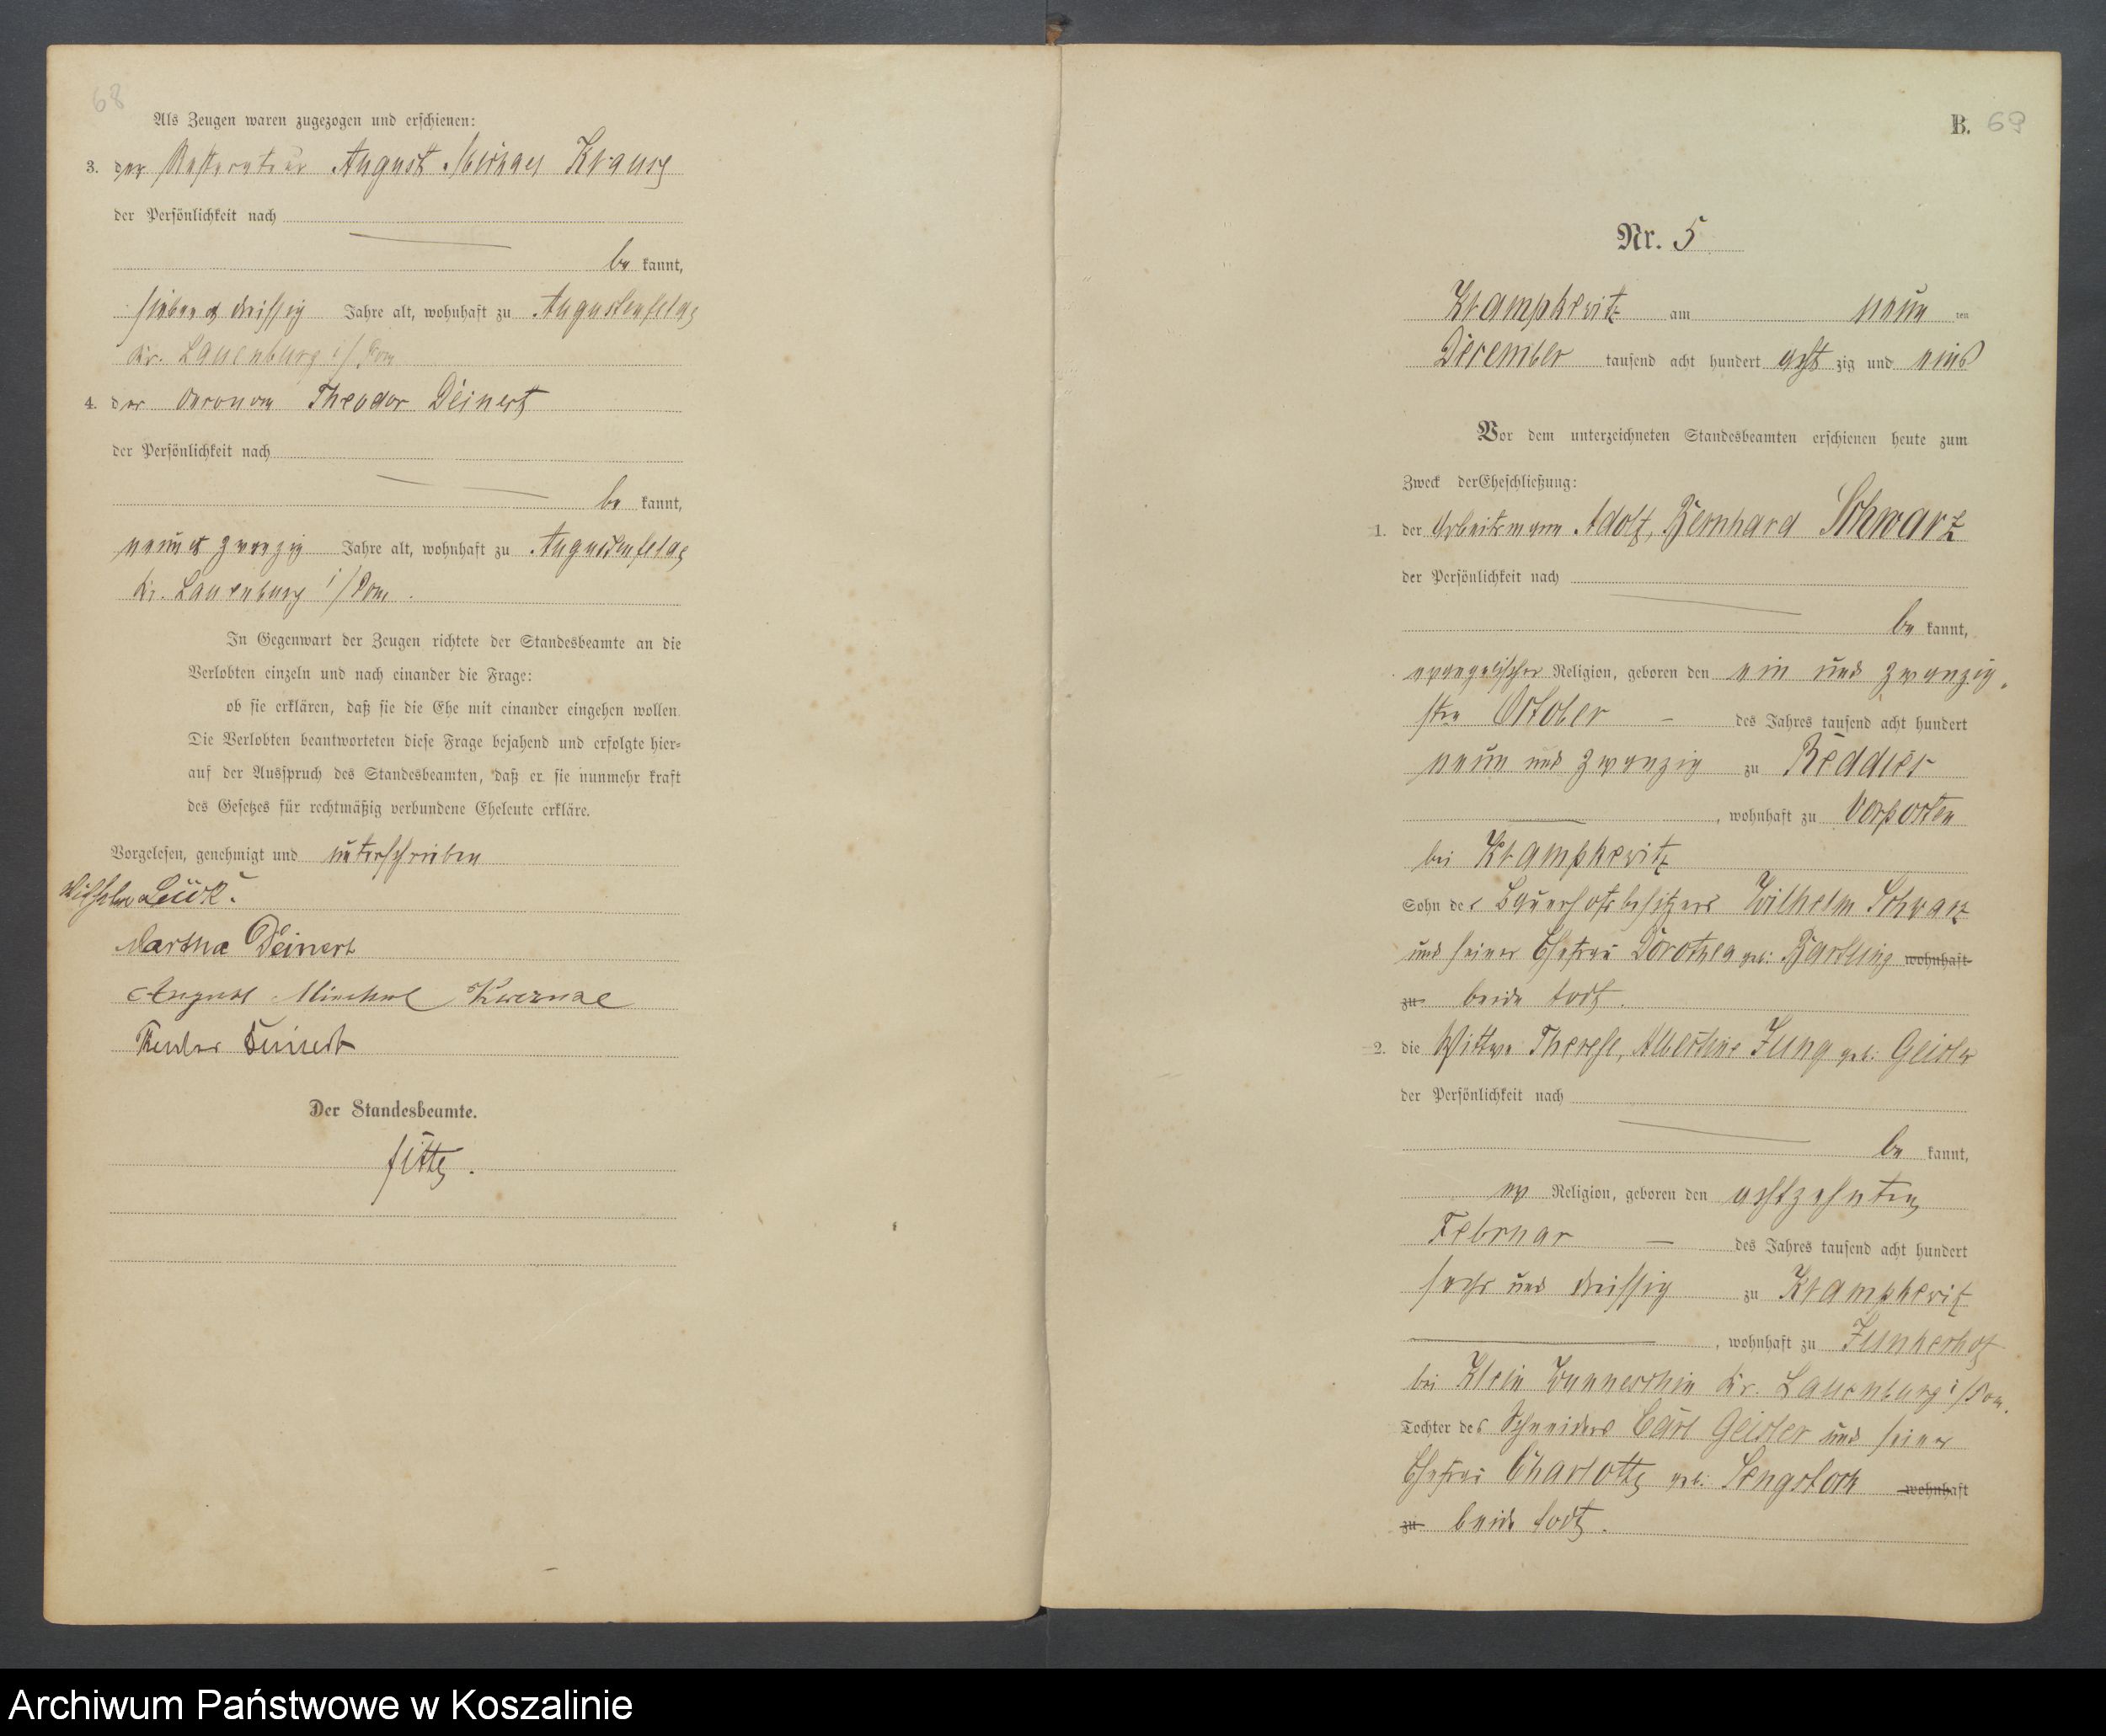 68
Als Zeugen waren zugezogen und erschienen:
3. der August Michael Krause
der Persönlichkeit nach
be kannt,
sieben & dreissig Jahre alt, wohnhaft zu Augustenfelde
Kr. Lauenburg i/Pom
4. der Oeconom Theodor Deinert
der Persönlichkeit nach
be kannt,
neun & zwanzig Jahre alt, wohnhaft zu Augustenfelde
Kr. Lauenburg i/Pom.
In Gegenwart der Zeugen richtete der Standesbeamte an die
Verlobten einzeln und nach einander die Frage:
ob sie erklären, daß sie die Ehe mit einander eingehen wollen
Die Verlobten beantworteten diese Frage bejahend und erfolgte hier-
auf der Ausspruch des Standesbeamten, daß er sie nunmehr kraft
des Gesetzes für rechtmäßig verbundene Eheleute erkläre.
Vorgelesen, genehmigt und unterschrieben
Wilhelm Lück.
Martha Deinert
August Michael
Theodor Deinert
Der Standesbeamte.
B. 69
Nr. 5
Krampkewitz am neun ten
December tausend acht hundert acht zig und eins
Vor dem unterzeichneten Standesbeamten erschienen heute zum
Zweck der Eheschließung:
1. der Arbeitsmann Adolf, Bernhard Schwarz
der Persönlichkeit nach
be kannt,
evangelischer Religion, geboren den ein und zwanzig
sten October des Jahres tausend acht hundert
neun und zwanzig zu Reddies
, wohnhaft zu Vorposten
bei Krampkewitz
Sohn des Bauerhofsbesitzers Wilhelm Schwarz
und seiner Ehefrau Dorothea geb: wohnhaft
zu beide todt.
2. die Wittwe Therese, Albertine Jung geb: Geisler
der Persönlichkeit nach
be kannt,
ev Religion, geboren den achtzehnten
Februar des Jahres tausend acht hundert
sechs und dreissig zu Krampkewitz
, wohnhaft zu Junkerhof
bei Klein Wunneschin Kr. Lauenburg i/Pom.
Tochter des Schneiders Carl Geisler und seiner
Ehefrau Charlotte geb: Sengstock wohnhaft
zu beide todt.